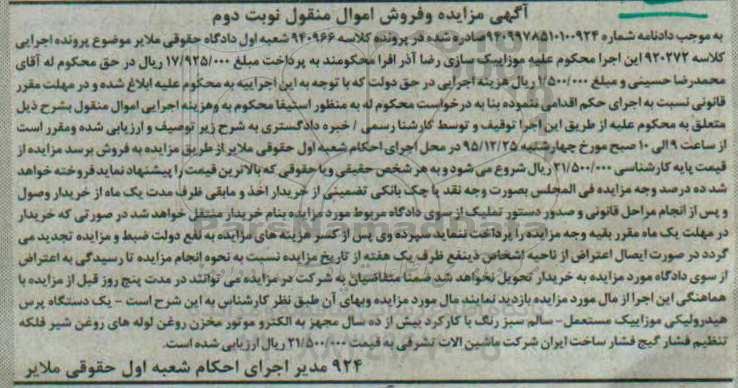 آگهی مزایده وفروش اموال منقول نوبت دوم
به موجب دادنامه شماره ۹۴۰۹۹۷۸۵۱۰۱۰۰۹۲۴صادره شده در پرونده کلاسه ۹۴۰۹۶۶ شعبه اول دادگاه حقوقی ملایر موضوع پرونده اجرایی
کلاسه ۹۲۰۲۷۲ این اجرا محکوم علیه موزاییک سازی رضا آذر افرا محکومند به پرداخت مبلغ ۱۷/۹۲۵/۰۰۰ ریال در حق محکوم له آقای
محمدرضا حسینی و مبلغ ۱/۵۰۰/۰۰۰ ریال هزینه اجرایی در حق دولت که با توجه به این اجراییه به محکوم علیه ابلاغ شده و در مهلت مقرر
قانونی نسبت به اجرای حکم اقدامی ننموده بنا به درخواست محکوم له به منظور استیفا محکوم به وهزینه اجرایی اموال منقول بشرح ذیل
متعلق به محکوم علیه از طریق این اجرا توقیف و توسط کارشنا رسمی / خبره دادگستری به شرح زیر توصیف و ارزیابی شده ومقرر است
از ساعت ۹ الی ۱۰ صبح مورخ چهارشنبه ۹۵/۱۲/۲۵ در محل اجرای احکام شعبه اول حقوقی ملایر از طریق مزایده به فروش برسد مزایده از
قیمت پایه کارشناسی ۲۱/۵۰۰/۰۰۰ ریال شروع می شود و به هر شخص حقیقی ویا حقوقی که بالاترین قیمت را پیشنهاد نماید فروخته خواهد
شد ده درصد وجه مزایده فی المجلس بصورت وجه نقد یا چک بانکی تضمینی از خریدار اخذ و مابقی ظرف مدت یک ماه از خریدار وصول
و پس از انجام مراحل قانونی و صدور دستور تملیک از سوی دادگاه مربوط مورد مزایده بنام خریدار منتقل خواهد شد در صورتی که خریدار
در مهلت یک ماه مقرر بقیه وجه مزایده را پرداخت ننماید سپرده وی پس از کسر هزینه های مزایده به نفع دولت ضبط و مزایده تجدید می
گردد در صورت ایصال اعتراض از ناحیه اشخاص ذینفع ظرف یک هفته از تاریخ مزایده نسبت به نحوه انجام مزایده تا رسیدگی به اعتراض
از سوی دادگاه مورد مزایده به خریدار تحویل نخواهد شد ضمنا متقاضیان به شرکت در مزایده می توانند در مدت پنج روز قبل از مزایده با
هماهنگی این اجرا از مال مورد مزایده بازدید نمایند مال مورد مزایده وبهای آن طبق نظر کارشناس به این شرح است - یک دستگاه پرس
هیدرولیکی موزاییک مستعمل- سالم سبز رنگ با کارکرد بیش از ده سال مجهز به الکترو موتور مخزن روغن لوله های روغن شیر فلکه
تنظیم فشار گیج فشار ساخت ایران شرکت ماشین الات تشرفی به قیمت ۲۱/۵۰۰/۰۰۰ ریال ارزیابی شده است.
۹۲۴ مدیر اجرای احکام شعبه اول حقوقی ملایر